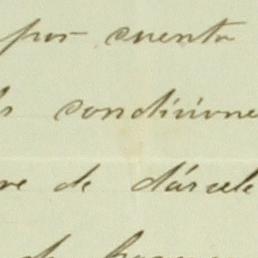 por cuenta
condicione
de dársele